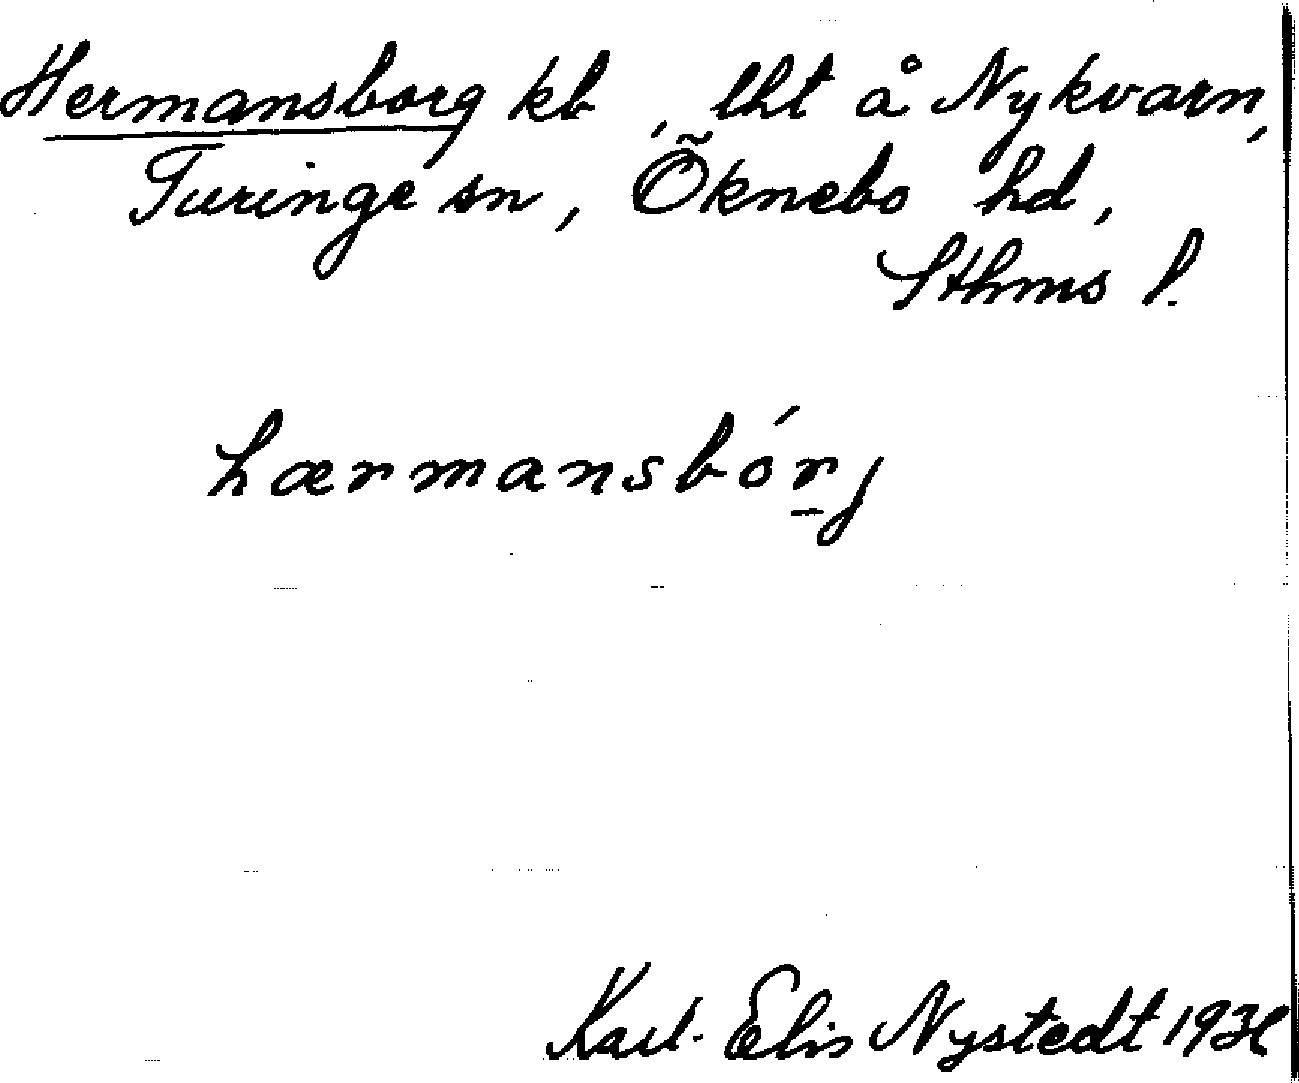 Hermansborg kb, lht å Nykvarn,
Turinge sn, Öknebo hd,
Sthms l.
hærmansbórj
Karl-Elis Nystedt